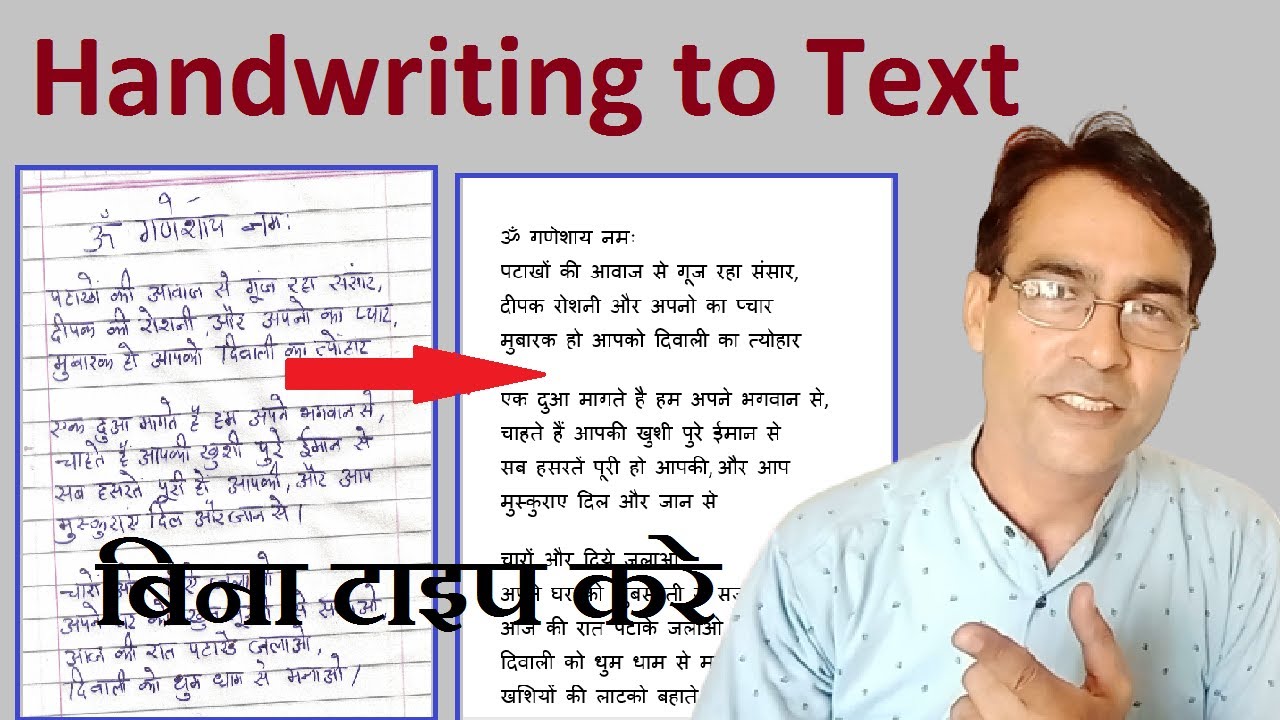 Handwriting to Text
ॐ गणेशाय नमः
पटाखों की आवाज से गूंज रहा संसार,
दीपक की रोशनी, और अपनो का प्यार,
मुबारक हो आपको दिवाली का त्योहार
एक दुआ मागते है हम अपने भगवान से,
चाहते हैं आपकी खुशी पुरे ईमान से
सब हसरतें पूरी हो आपकी, और आप
मुस्कुराएं दिल और जान से।
चारो
अपने
आज की रात पटाखे जलाओ,
दिवाली को धुम धाम से मनाओ।
ॐ गणेशाय नमः
पटाखों की आवाज से गूज रहा संसार,
दीपक रोशनी और अपनो का प्चार
मुबारक हो आपको दिवाली का त्योहार
एक दुआ मागते है हम अपने भगवान से,
चाहते हैं आपकी खुशी पुरे ईमान से
सब हसरतें पूरी हो आपकी, और आप
मुस्कुराए दिल और जान से
चारों और दिये जलाओ
आज की रात पटाके जलाओ
दिवाली को धुम धाम से
खशियों की लाटको बहाते
बिना टाइप करे